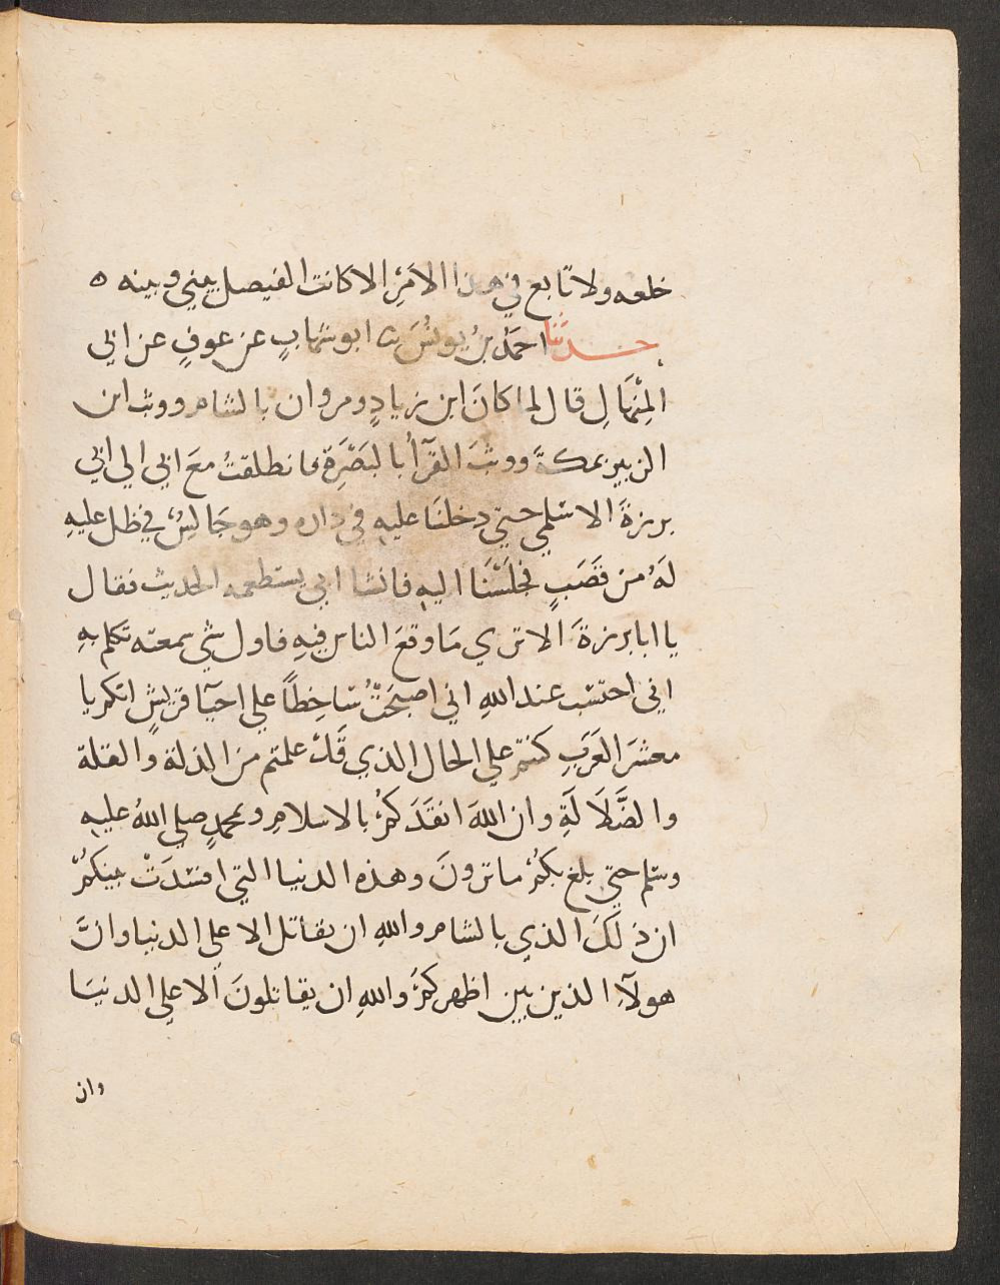 خلعه ولا تابع في هذا الامر الا كانت الفيصل بيني وبينه ه
حدثنا احمد بن يونس ثا ابو شهاب عن عوف عن ابي
المنهال قال لما كان ابن زياد ومروان بالشام ووثب ابن
الزبير بمكة ووثب القرآ بالبصرة فانطلقت مع ابي الي ابي
برزة الاسلمي حتي دخلنا عليه في داره وهو جالس في ظل عليه
له من قصب فجلسنا اليه فانشا ابي يستطعمه الحديث فقال
يا ابا برزة الا تري ما وقع الناس فيه فاول شي سمعته تكلم به
اني احتسب عند الله اني اصبحت ساخطا علي احيا قريش انكم يا
معشر العرب كنتم علي الحال الذي قد علمتم من الذلة والقلة
والضلالة وان الله انقذكم بالاسلام وبمحمد صلي الله عليه
وسلم حتي بلغ بكم ما ترون وهذه الدنيا التي افسدت بينكم
ان ذلك الذي بالشام والله ان يقاتل الا علي الدنيا وان
هولآ الذين بين اظهركم والله ان يقاتلون الا علي الدنيا
وان